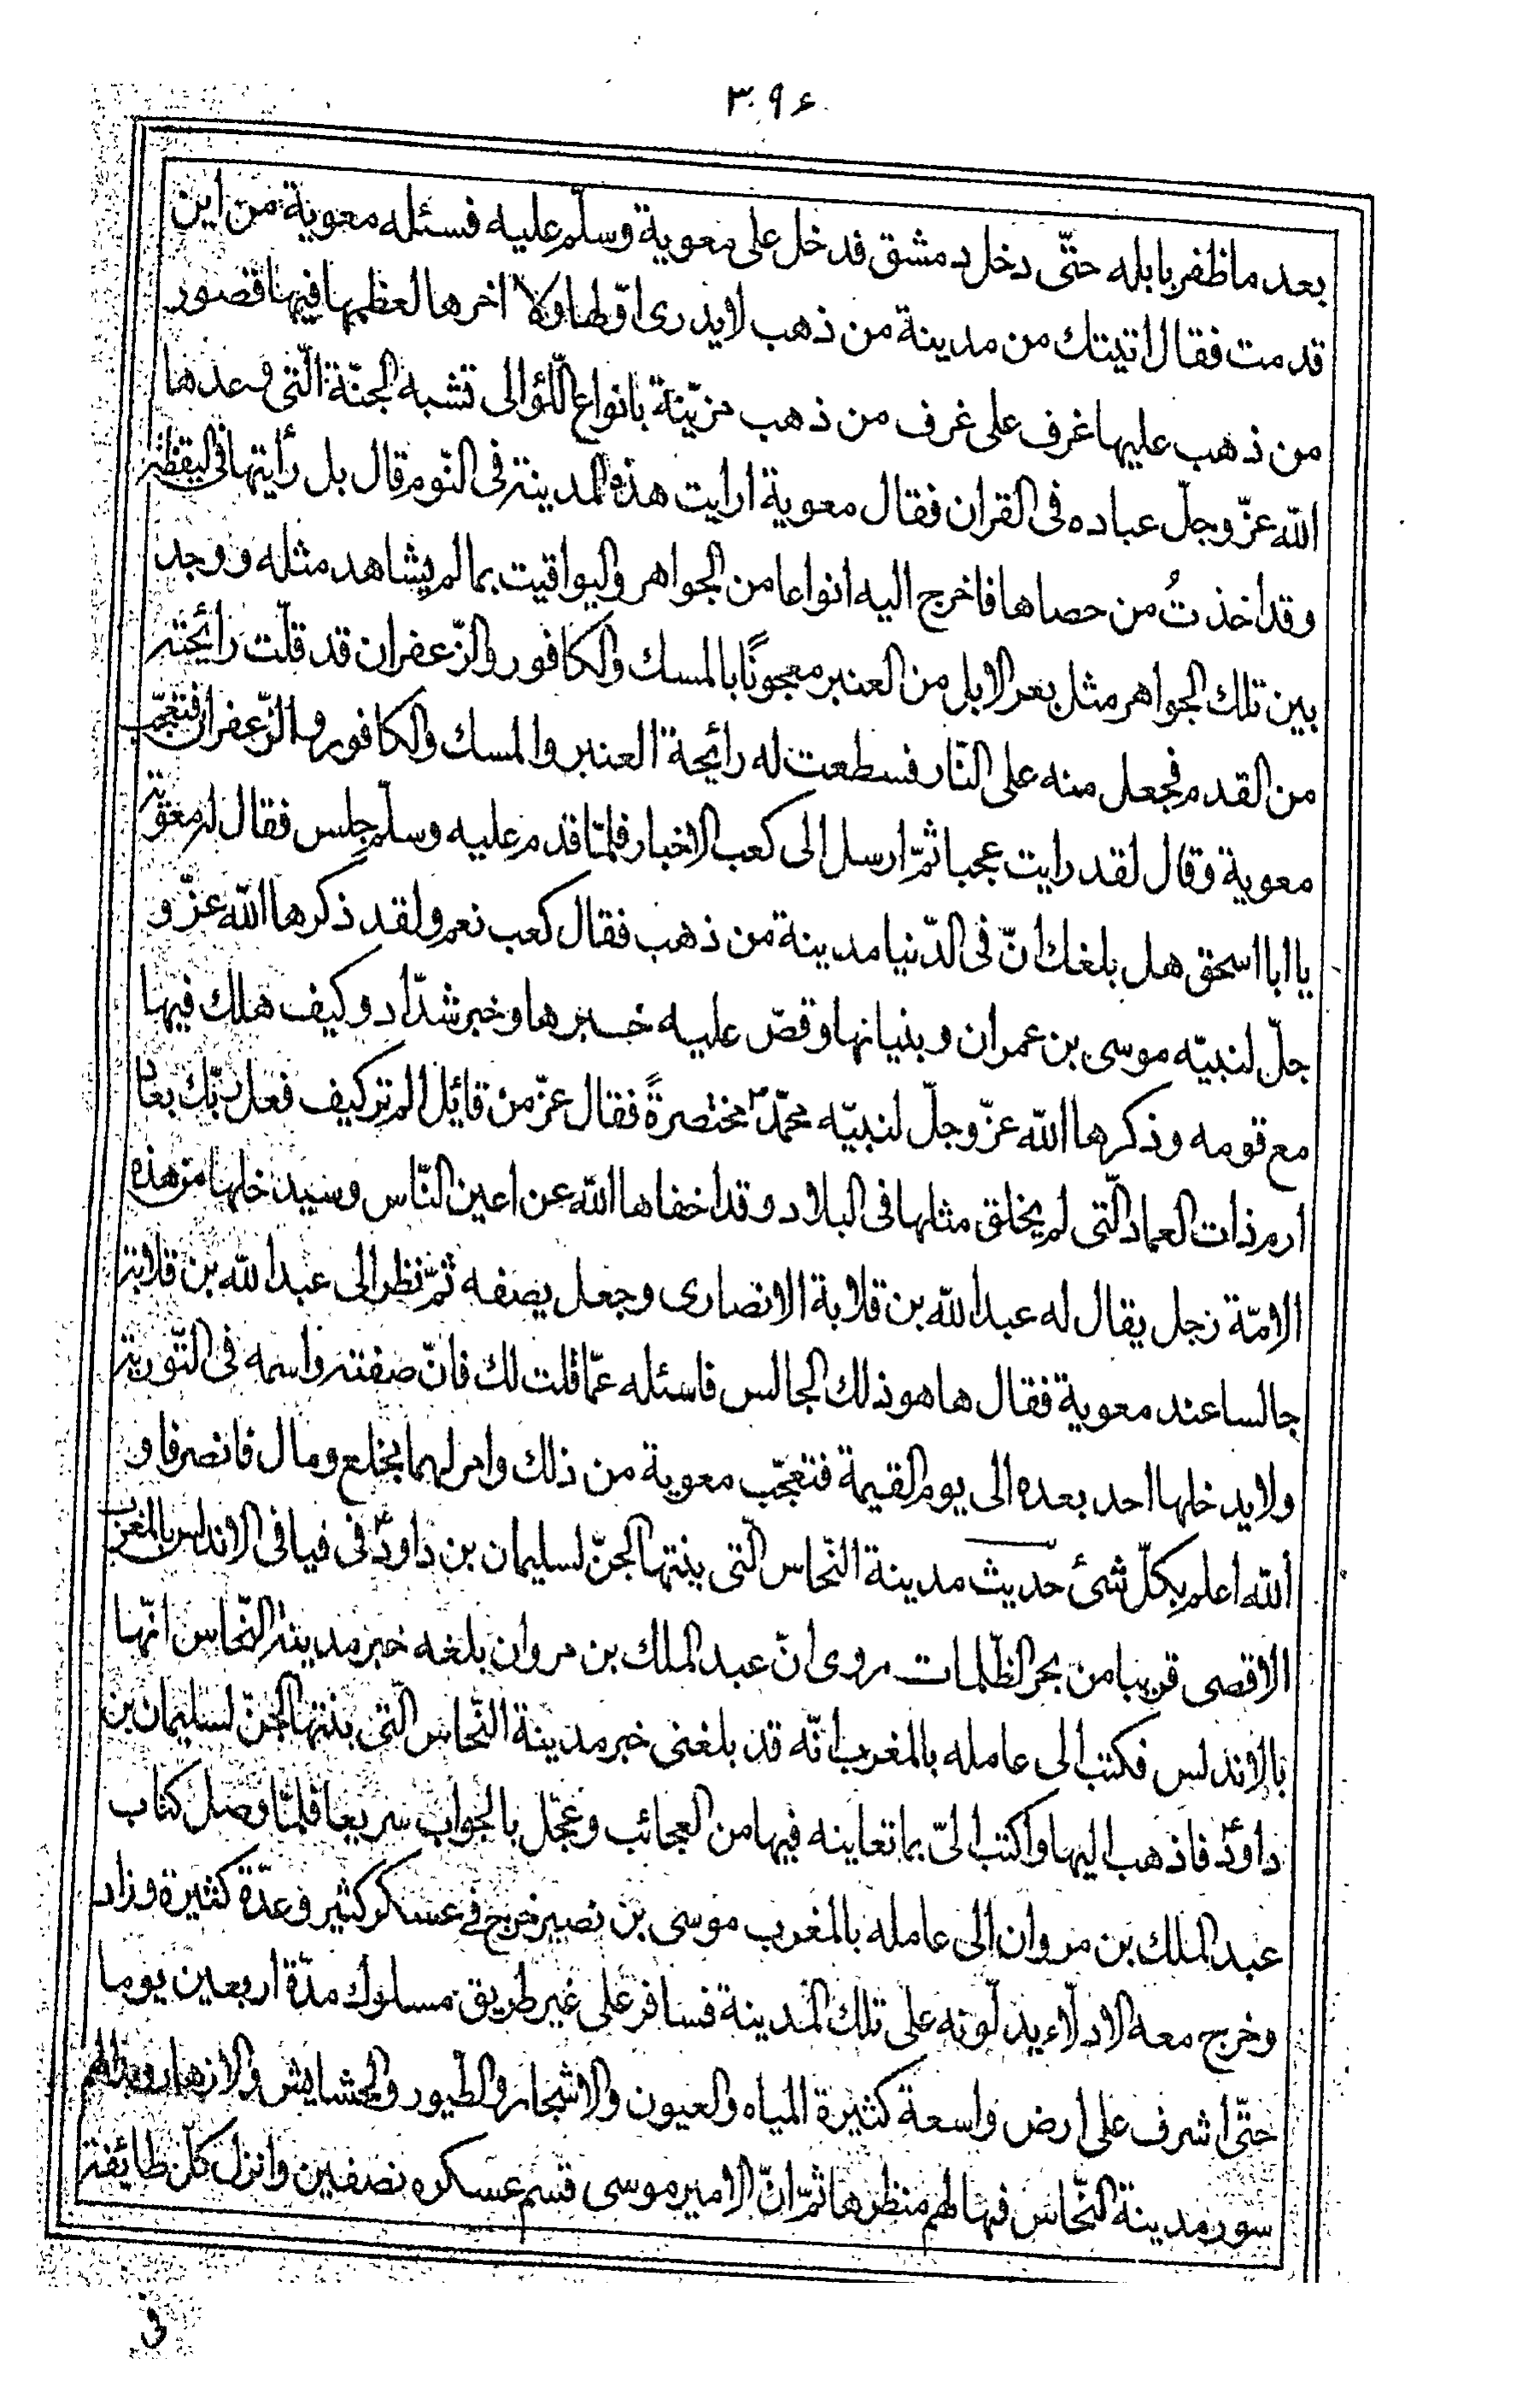 ۳۹۶
بعد ما ظفر بابله حتّى دخل دمشق فدخل على معوية وسلّم عليه فسئله معوية من اين
قدمت فقال اتيتك من مدينة من ذهب لا يدرى اوّلها ولا اخرها لعظمها فيها قصور
من ذهب عليها غرف على غرف من ذهب مزيّنة بانواع اللّؤالى تشبه الجنّة الّتى وعدها
اللّه عزّ وجلّ عباده فى القران فقال معوية ارايت هذه المدينة فى النّوم قال بل رأيتها فى اليقظة
وقد اخذتُ من حصاها فاخرج اليه انواعا من الجواهر واليواقيت بما لم يشاهد مثله ووجد
بين تلك الجواهر مثل بعر الابل من العنبر معجونًا بالمسك والكافور والزّعفران قد قلّت رائحته
من القدم فجعل منه على النّار فسطعت له رائحة العنبر والمسك والكافور والزّعفران فتعجّب
معوية وقال لقد رايت عجبا ثمّ ارسل الى كعب الاخبار فلمّا قدم عليه وسلّم جلس فقال له معوية
يا ابا اسحق هل بلغك انّ فى الدّنيا مدينة من ذهب فقال كعب نعم ولقد ذكرها اللّه عزّ و
جلّ لنبيّه موسى بن عمران وبنيانها وقصّ عليه خبرها وخبر شدّاد وكيف هلك فيها
مع قومه وذكرها اللّه عزّ وجلّ لنبيّه محمّد مختصرةً فقال عزّ من قائل الم تر كيف فعل ربّك بعاد
ارم ذات العماد الّتى لم يخلق مثلها فى البلاد وقد اخفاها اللّه عن اعين النّاس وسيدخلها من هذه
الامّة رجل يقال له عبد اللّه بن قلابة الانصارى وجعل يصفه ثمّ نظر الى عبد اللّه بن قلابة
جالسا عند معوية فقال ها هو ذلك الجالس فاسئله عمّا قلت لك فانّ صفته واسمه فى التّورية
ولا يدخلها احد بعده الى يوم القيمة فتعجّب معوية من ذلك وامر لهما بخلع ومال فانصرفا و
اللّه اعلم بكلّ شئ حديث مدينة النّحاس الّتى بنتها الجنّ لسليمان بن داودّ فى فيافى الاندلس بالمغرب
الاقصى قريبا من بحر الظّلمات روى انّ عبد الملك بن مروان بلغه خبر مدينة النّحاس انّها
بالاندلس فكتب الى عامله بالمغرب انّه قد بلغنى خبر مدينة النّحاس الّتى بنتها الجنّ لسليمان بن
داودّ فاذهب اليها واكتب الىّ بما تعاينه فيها من العجائب وعجّل بالجواب سريعا فلمّا وصل كتاب
عبد الملك بن مروان الى عامله بالمغرب موسى بن نصير خرج فى عسكر كثير وعدّة كثيرة وزاد
وخرج معه الادلّاء يدلّونه على تلك المدينة فسافر على غير طريق مسلوك مدّة اربعين يوما
حتّى اشرف على ارض واسعة كثيرة المياه والعيون والاشجار والطّيور والحشايش والازهار وبدا لهم
سور مدينة النّحاس فهالهم منظرها ثمّ انّ الامير موسى قسّم عسكره نصفين وانزل كلّ طائفة
فى